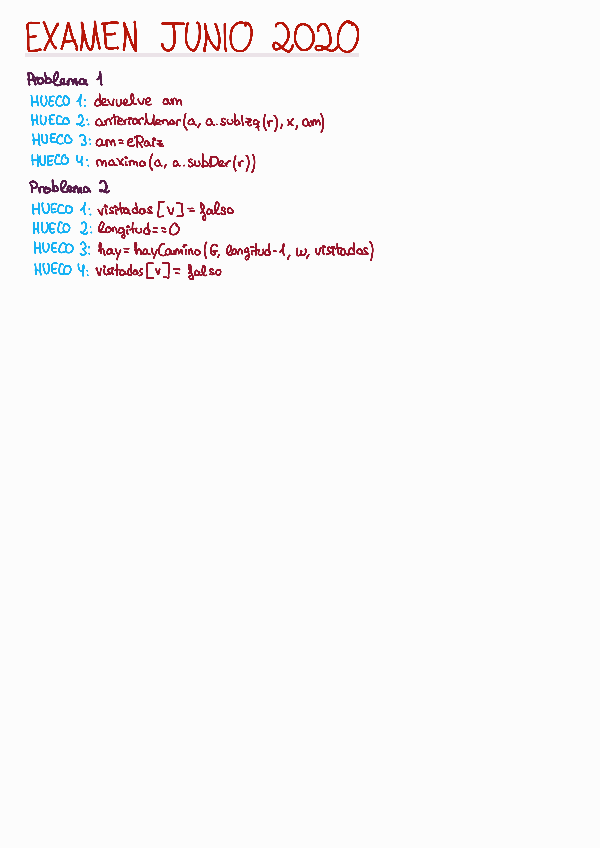 EXAMEN JUNIO 2020
Problema 1
HUECO 1: devuelve am
HUECO 2: anteriorMenor(a, a.subIzq(r), x, am)
HUECO 3: am = eRaiz
HUECO 4: maximo(a, a.subDer(r))
Problema 2
HUECO 1: visitados[v] = falso
HUECO 2: longitud==0
HUECO 3: hay = hayCamino(G, longitud-1, w, visitados)
HUECO 4: visitados[v] = falso